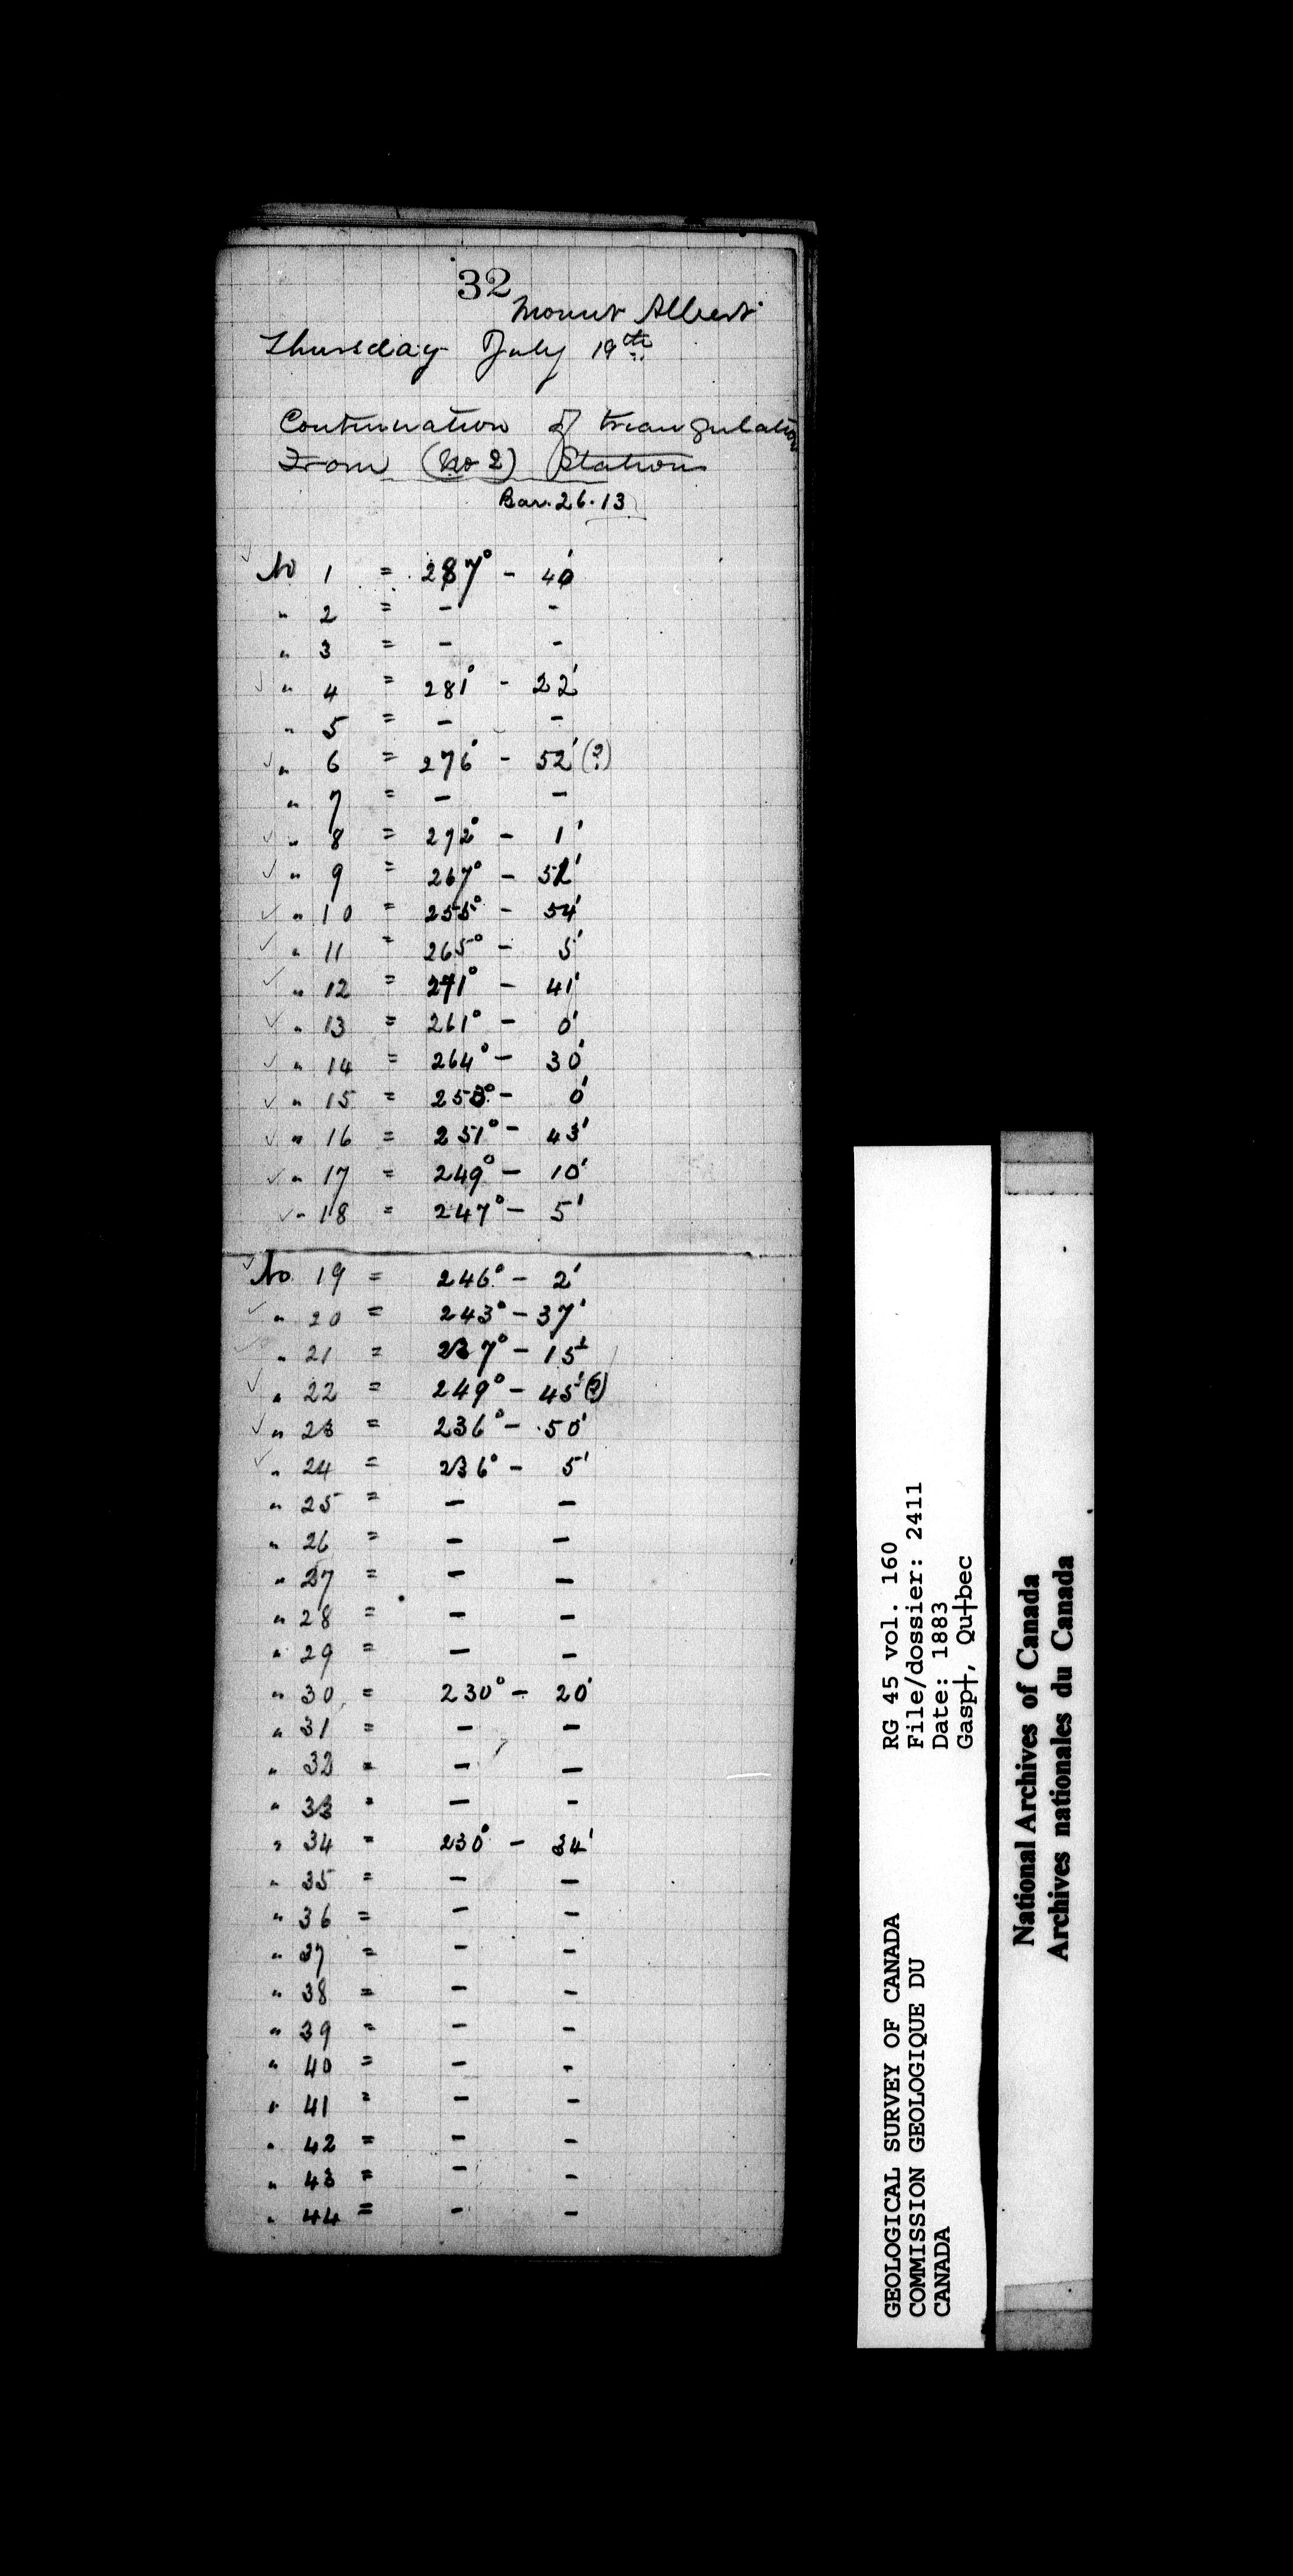 32
Mount Albert
Thursday July 19th
Continuation of triangulation
From (No 2) Station
Bar. 26.13
No 1 = 287° - 40'
" 2 = - -
" 3 = - -
✓ " 4 = 281° - 22'
" 5 = - -
✓ " 6 = 276° - 52' (?)
" 7 = - -
✓ " 8 = 272° - 1'
✓ " 9 = 267° - 52'
✓ " 10 = 255° - 54'
✓ " 11 = 265° - 5'
✓ " 12 = 271° - 41'
✓ " 13 = 261° - 0'
✓ " 14 = 264° - 30'
✓ " 15 = 253° - 0'
✓ " 16 = 251° - 43'
✓ " 17 = 249° - 10'
✓ " 18 = 247° - 5'
✓ No 19 = 246° - 2'
✓ " 20 = 243° - 37'
" 21 = 237° - 15'
✓ " 22 = 249° - 45' (?)
✓ " 23 = 236° - 50'
✓ " 24 = 236° - 5'
" 25 = - -
" 26 = - -
" 27 = - -
" 28 = - -
" 29 = - -
" 30 = 230° - 20'
" 31 = - -
" 32 = - -
" 33 = - -
" 34 = 230° - 34'
" 35 = - -
" 36 = - -
" 37 = - -
" 38 = - -
" 39 = - -
" 40 = - -
" 41 = - -
" 42 = - -
" 43 = - -
" 44 = - -
GEOLOGICAL SURVEY OF CANADA RG 45 vol. 160
COMMISSION GEOLOGIQUE DU File/dossier: 2411
CANADA Date: 1883
Gasp†, Qu†bec
National Archives of Canada
Archives nationales du Canada